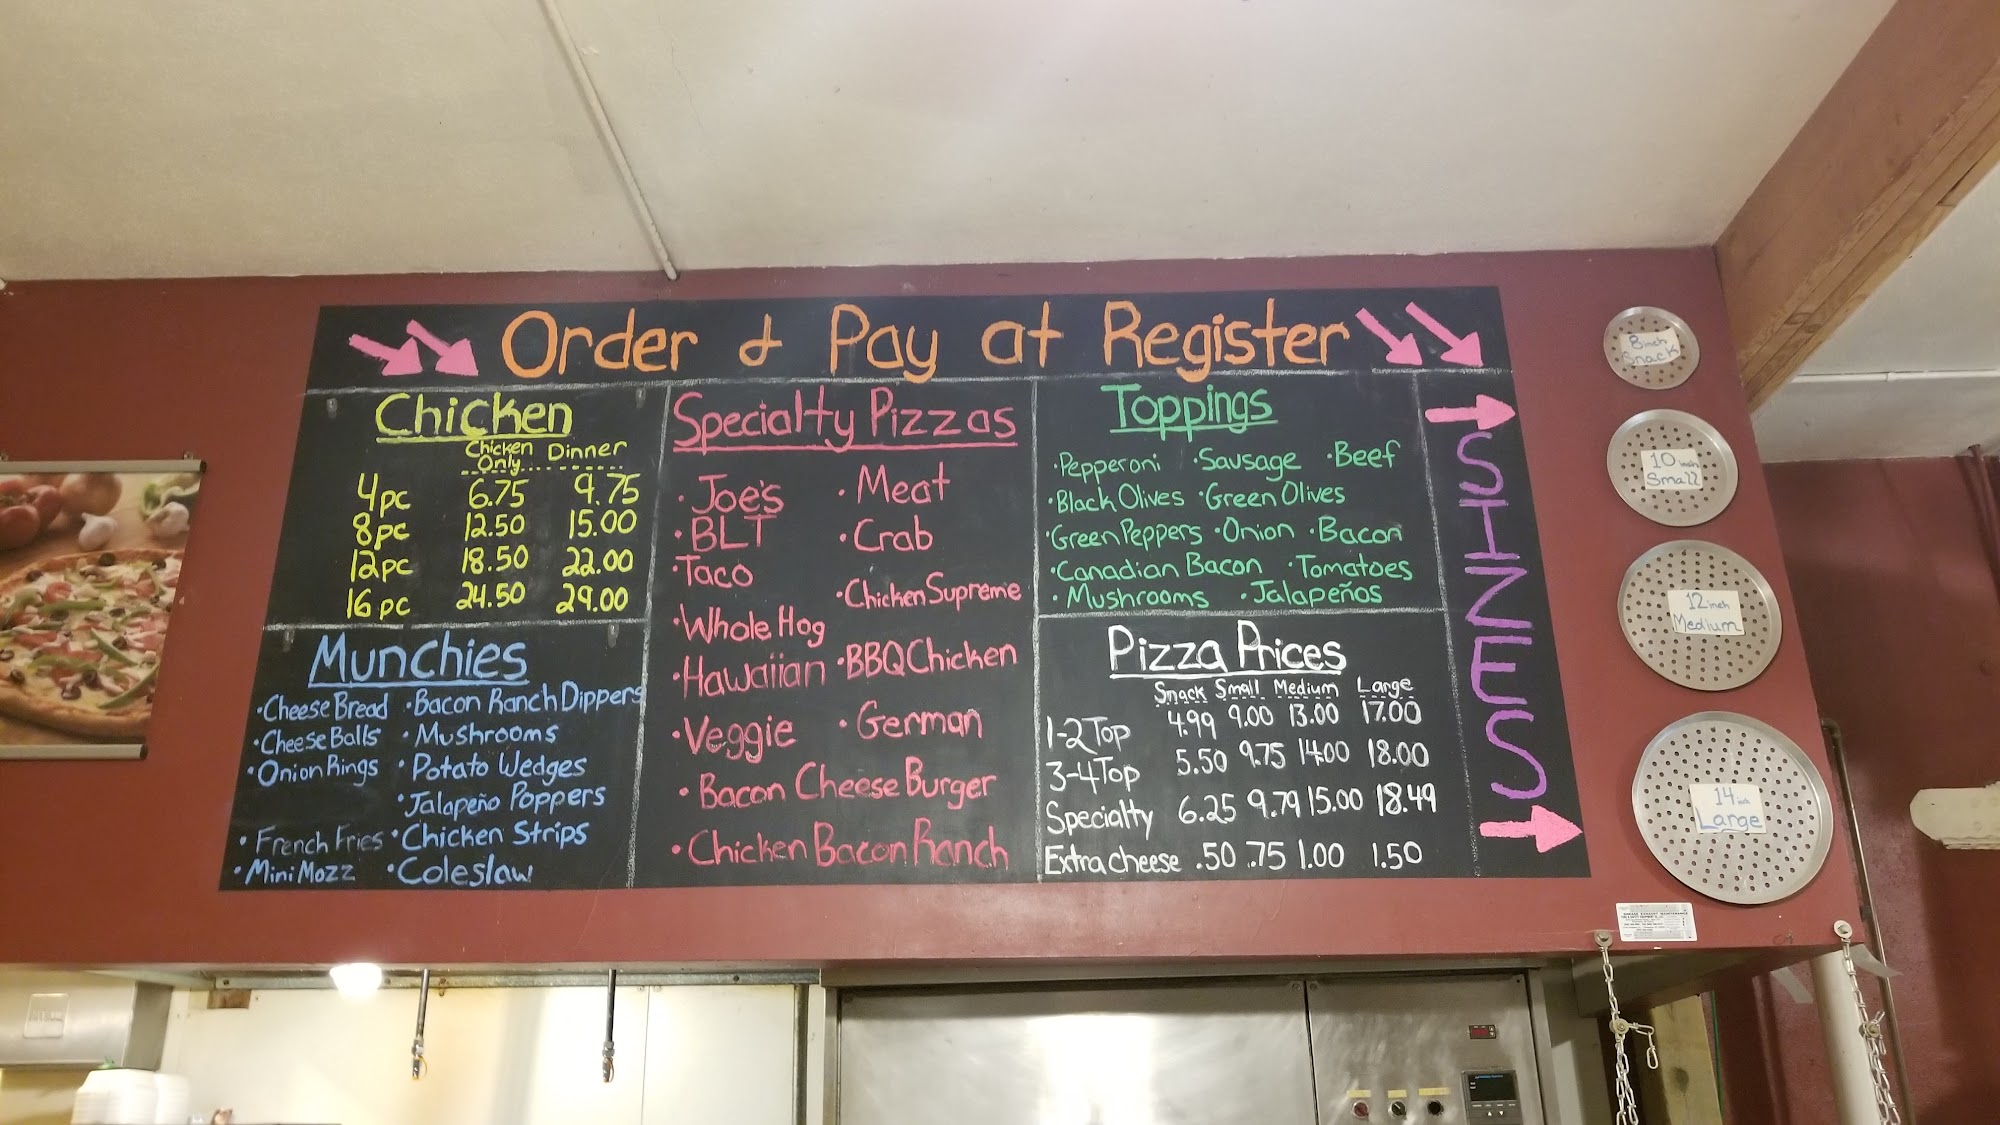 Order & Pay at Register
Chicken
Chicken Only Dinner
4pc 6.75 9.75
8pc 12.50 15.00
12pc 18.50 22.00
16pc 24.50 29.00
Munchies
•Cheese Bread •Bacon Ranch Dippers
•Cheese Balls •Mushrooms
•Onion Rings •Potato Wedges
•Jalapeño Poppers
•French Fries •Chicken Strips
•Mini Mozz •Coleslaw
Specialty Pizzas
•Joe's •Meat
•BLT •Crab
•Taco •Chicken Supreme
•Whole Hog
•Hawaiian •BBQ Chicken
•Veggie •German
•Bacon Cheese Burger
•Chicken Bacon Ranch
Toppings
•Pepperoni •Sausage •Beef
•Black Olives •Green Olives
•Green Peppers •Onion •Bacon
•Canadian Bacon •Tomatoes
•Mushrooms •Jalapeños
Pizza Prices
Snack Small Medium Large
1-2 Top 4.99 9.00 13.00 17.00
3-4 Top 5.50 9.75 14.00 18.00
Specialty 6.25 9.79 15.00 18.49
Extra cheese .50 .75 1.00 1.50
SIZES
8inch
Snack
10 inch
Small
12 inch
Medium
14 inch
Large